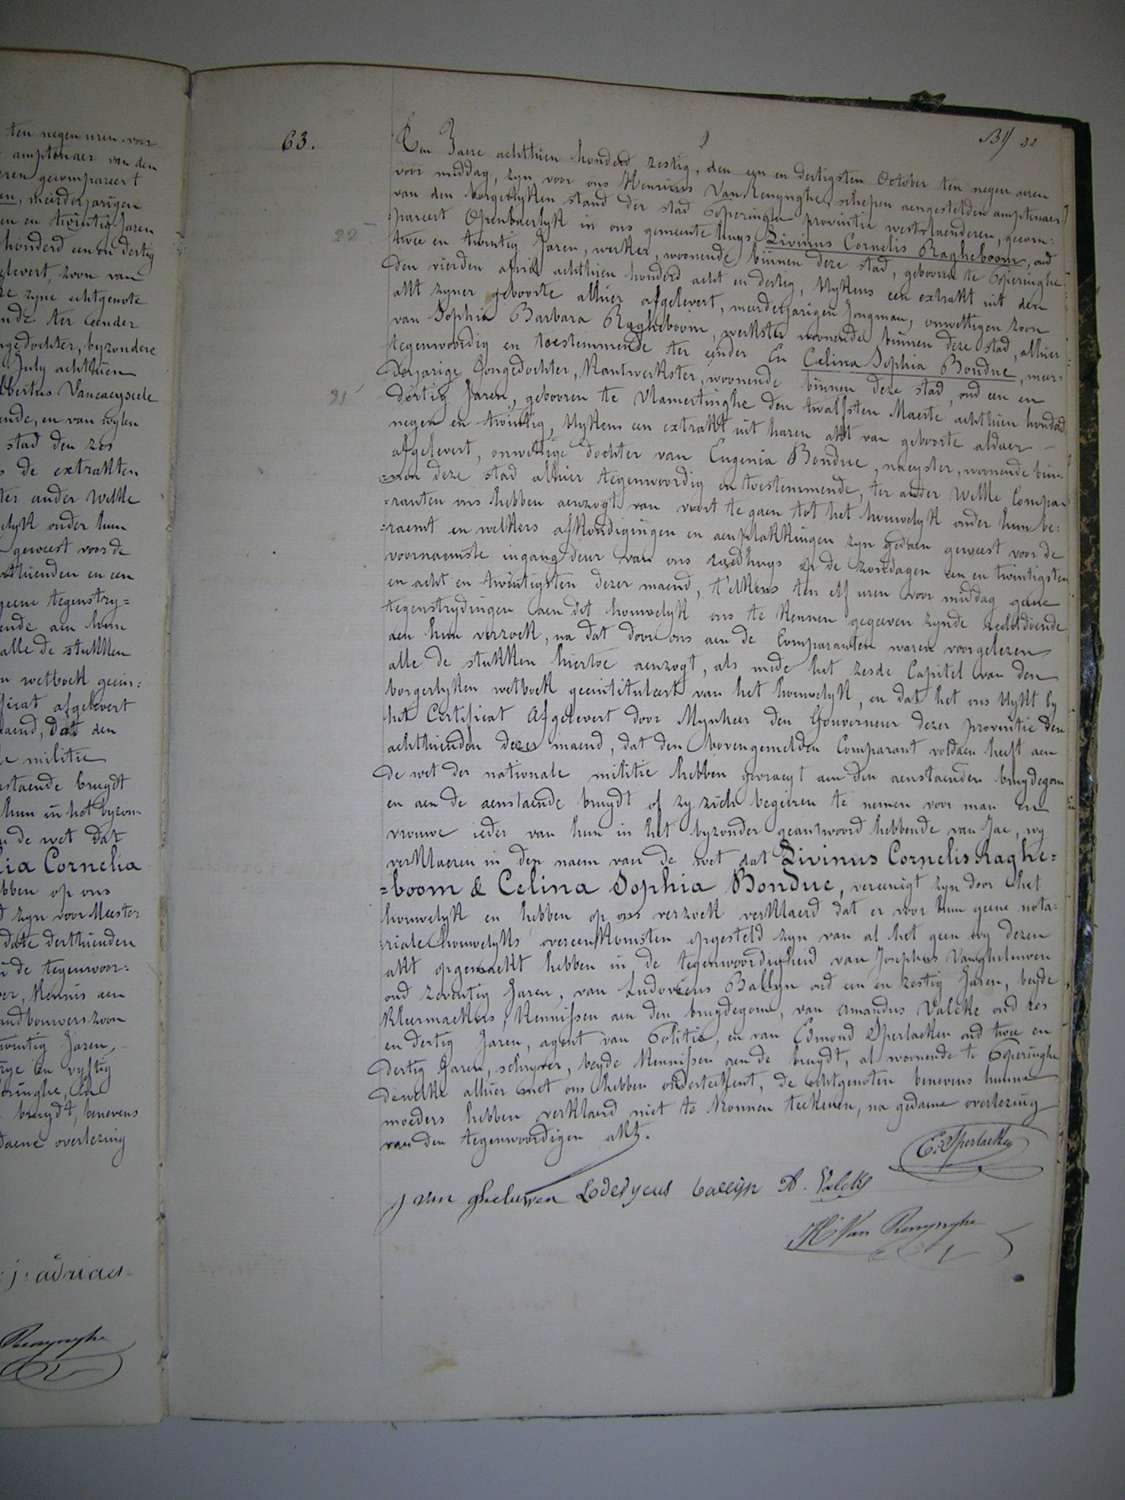 ten negen uren voor
amptenaer van den
eren gecompareert
en, meerderjarigen
en en twintig Jaren
honderd een en dertig
gelevert, zoon van
ze zyne echtgenote
ende ter eender
ngedochter, byzondere
July achthien
lbertus Vancayseele
ende, en van wylen
stad den zes
s de extrakten
ter ander Welke
elyk onder hun
geweest voor de
sthienden en een
geene tegenstry=
ende aen hun
alle de stukken
n wetboek geein=
ficat afgelevert
maend, Dat den
le militie
nstaende bruydt
hun in het byzon
n de wet dat
lia Cornelia
ebben op ons
d zyn voor Meester
date derthienden
in de tegenwoor=
er, Kennis aen
landbouwerszoon
twintig Jaren,
rye en vyftig
eringhe, de
bruydt, benevens
daene overlezing
j. adriaes
Renynghe
63.
Bÿ 32
Ten Jaere achthien honderd zestig, den een en dertigsten October ten negen uren
voor middag, zyn voor ons Henricus Van Renynghe, schepen aengestelden amptenaer
van den borgerlyken stand der stad Poperinghe provintie westvlaenderen, gecom=
22 pareert openbaerlyk in ons gemeente huys Livinus Cornelis Ragheboom, oud
twee en twintig Jaren, werker, woonende binnen deze stad, gebooren te Poperinghe
den vierden april achthien honderd acht en dertig, blykens een extrakt uit den
akt zyner geboorte alhier afgelevert, meerderjarigen Jongman, onwettigen zoon
van Sophia Barbara Ragheboom, werkster woonende binnen deze stad, alhier
tegenwoordig en toestemmende ter eender En Celina Sophia Bondue, meer=
derjarige Jongedochter, Kantwerkster, woonende binnen deze stad, oud een en
31 dertig Jaren, gebooren te Vlamertinghe den twalfsten Maerte achthien honderd
negen en twintig, blykens een extrakt uit haren akt van geboorte aldaer
afgelevert, onwettige dochter van Eugenia Bondue, naeyster, woonende bin=
nen deze stad alhier tegenwoordig en toestemmende, ter ander Welke Compa=
ranten ons hebben aenzogt van voort te gaen tot het houwelyk onder hun be=
raemt en welkers afkondigingen en aenplakkingen zyn gedaen geweest voor de
voornaemste ingang deur van ons raedhuys op de zondagen een en twintigsten
en acht en twintigsten dezer maend, t'elkens ten elf uren voor middag geene
tegenstrydingen aen dit houwelyk ons te kennen gegeven zynde voldoende
aen hun verzoek, na dat door ons aen de Comparanten waren voorgelezen
alle de stukken hiertoe aenzogt, als mede het zesde Capitel van den
borgerlyken wetboek geeintituleert van het houwelyk, en dat het ons blykt by
het Certificat afgelevert door Mynheer den Gouverneur dezer provintie den
achthienden dezer maend, dat den bovengemelden Comparant voldaen heeft aen
de wet der nationale militie hebben gevraegt aen den aenstaenden bruydegom
en aen de aenstaende bruydt of zy zich begeeren te nemen voor man en
vrouwe ieder van hun in het byzonder geantwoord hebbende van Jae, wy
verklaeren in den naem van de wet dat Livinus Cornelis Raghe=
=boom & Celina Sophia Bondue, vereenigt zyn door het
houwelyk en hebben op ons verzoek verklaerd dat er voor hun geene nota=
riale houwelyks overeenkomsten opgesteld zyn van al het geen wy dezen
akt opgemaekt hebben in de tegenwoordigheid van Josephus Vangheluwen
oud zeventig Jaren, van Ludovicus Ballyn oud een en zestig Jaren, beyde
kleermackers, Kennissen aen den bruydegom, van Amandus Valcke oud zes
en dertig Jaren, agent van Politie, en van Edmond Sperlaeken oud twee en
dertig Jaren, schryver, beyde Kennissen aen de bruydt, al woonende te Poperinghe
dewelke alhier met ons hebben onderteekent, de echtgenoten benevens hunne
moeders hebben verklaerd niet te konnen teekenen, na gedaene overlezing
van den tegenwoordigen akt.
E. Sperlaeken
J van gheluwen Lodevycus Balleijn A. Valcke
H. Van Renynghe